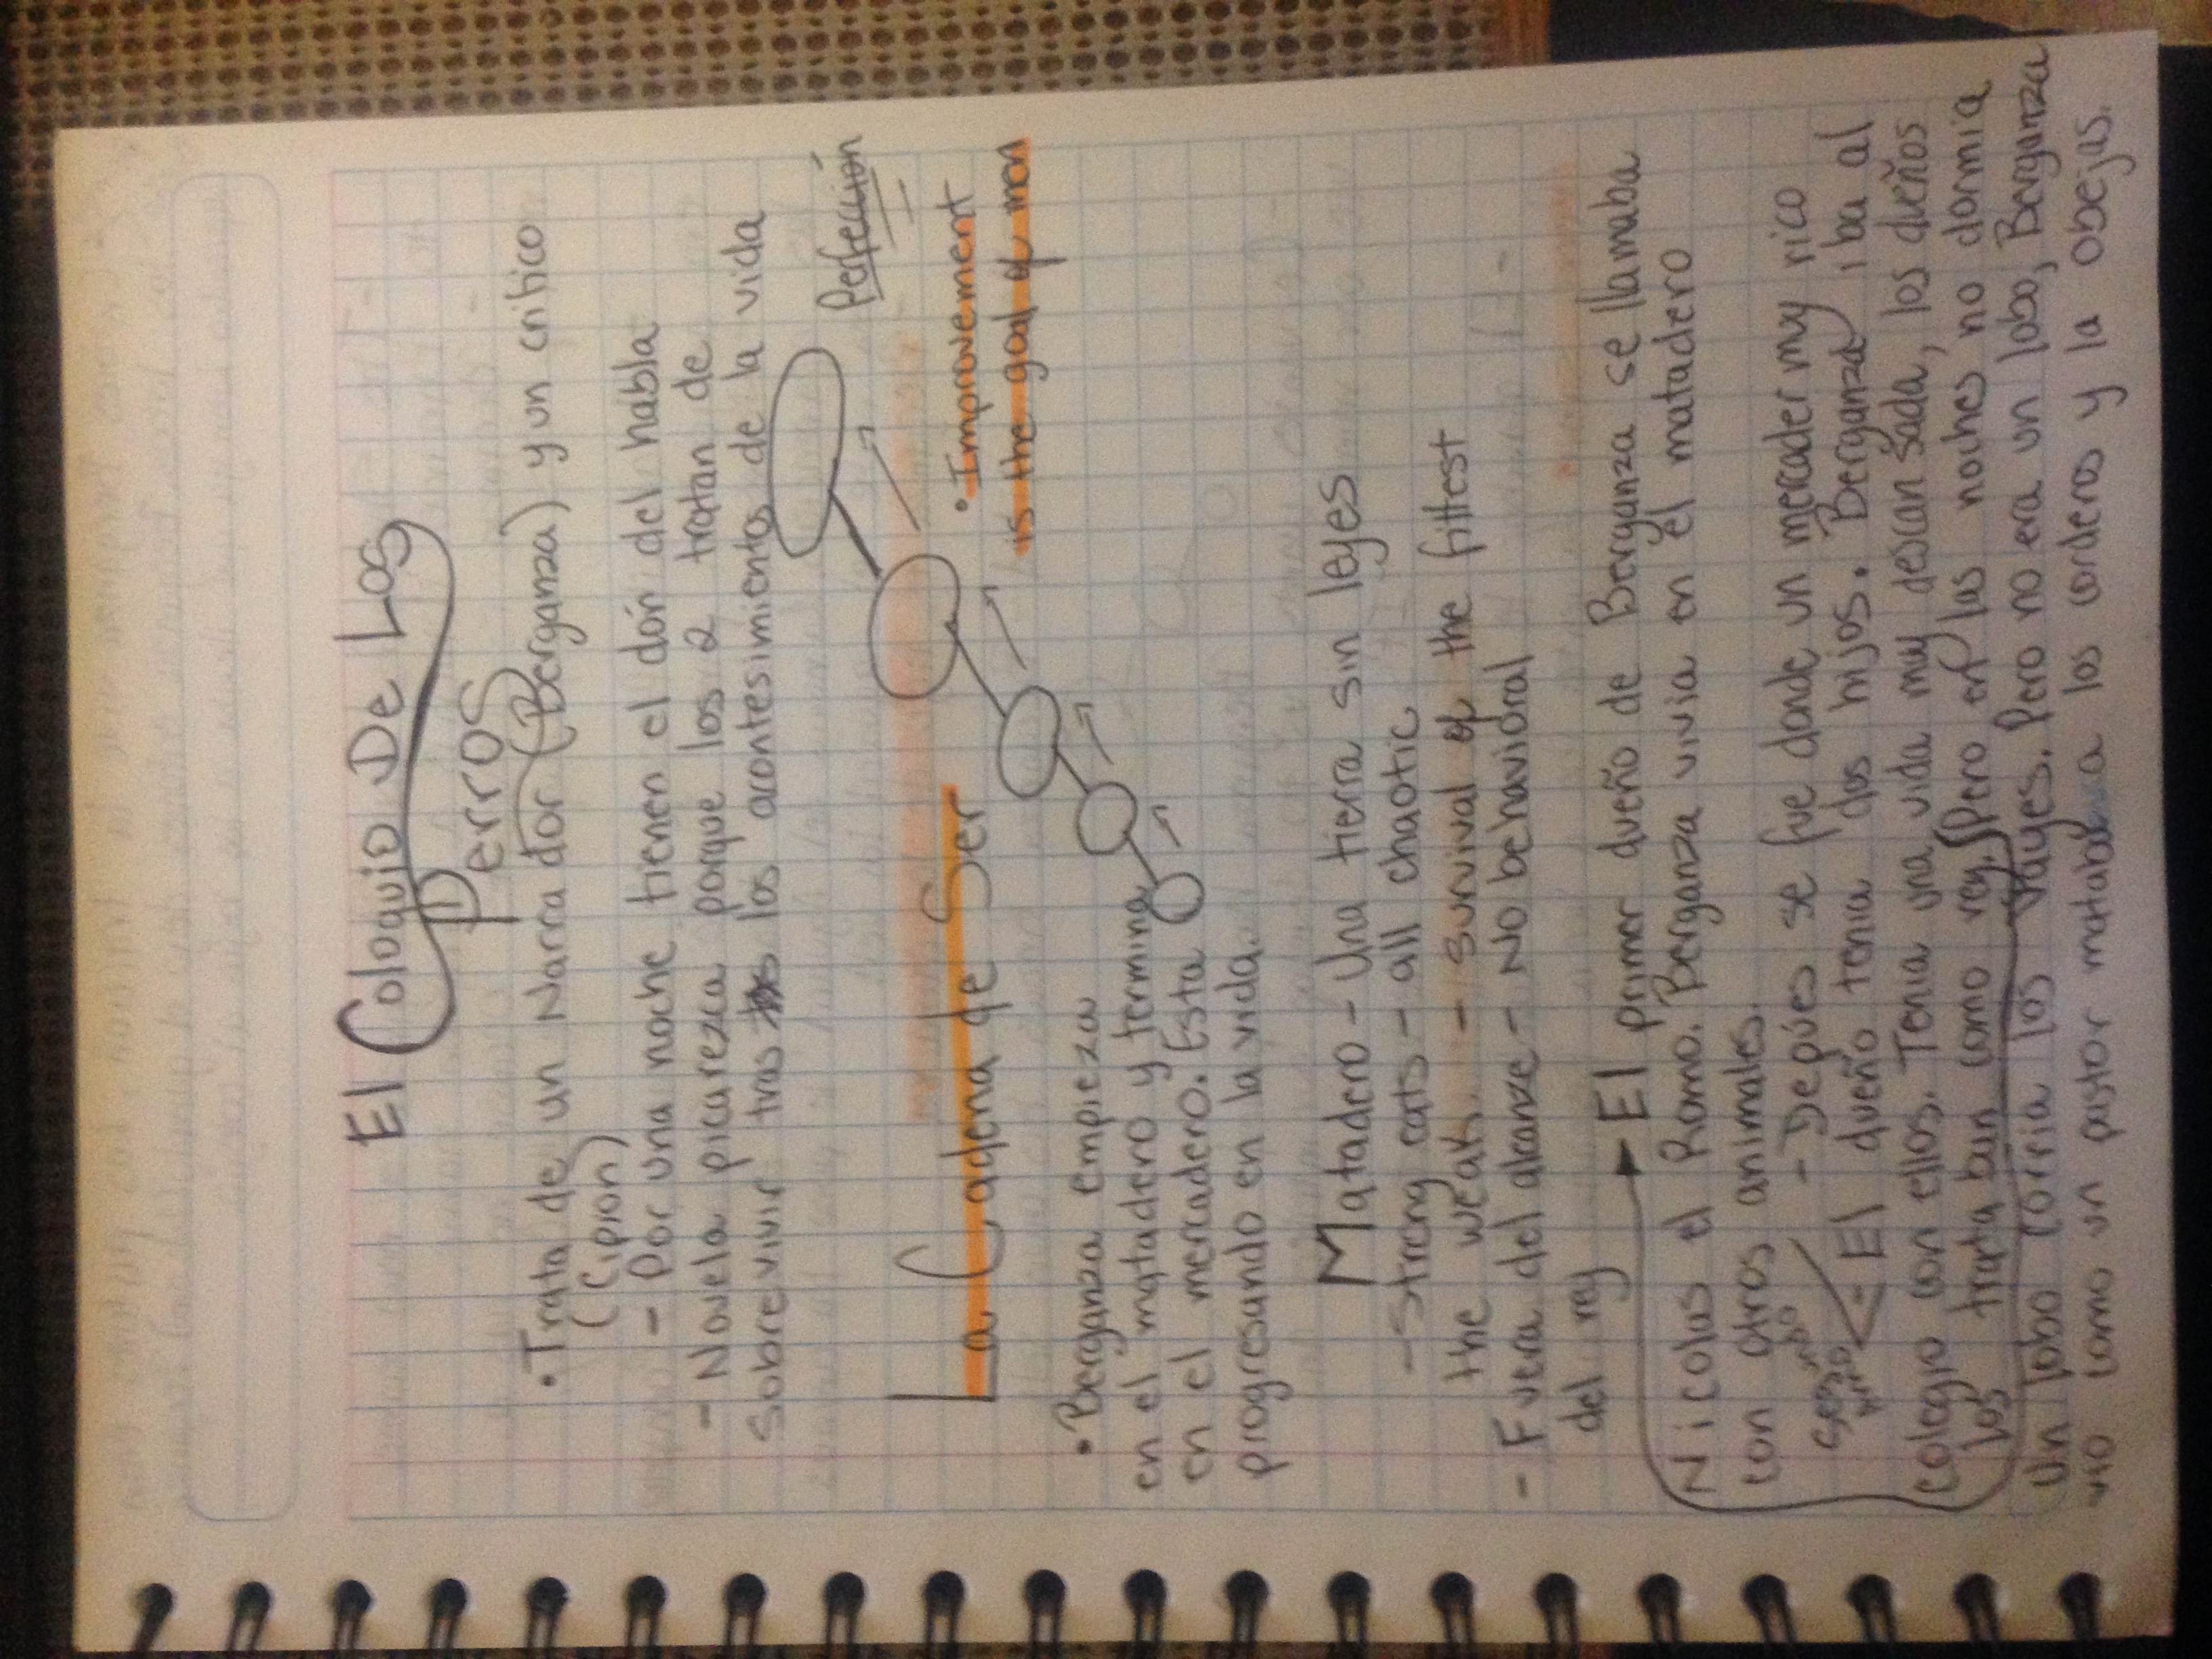 El Coloquio De Los
Perros
• Trata de un Narrador (Berganza) y un critico
(Cipion)
- Por una noche tienen el dón del habla
- Novela picarezca porque los 2 tratan de
sobrevivir tras los acontesimientos de la vida
La Cadena de Ser
Perfección
• Improvement
is the goal of man
• Berganza empieza
en el matadero y termina
en el mercadero. Esta
progresando en la vida.
Matadero - Una tierra sin leyes
- Strong eats - all chaotic
the weak. - survival of the fittest
- Fuera del alcanze - No behavidral
del rey
El primer dueño de Berganza se llamaba
Nicolas el Romo. Berganza vivia en el matadero
con otros animales.
- Depúes se fue donde un mercader muy rico
- El dueño tenia dos hijos. Berganza iba al
colegio con ellos. Tenia una vida muy descansada, los dueños
los trataban como rey. Pero en las noches no dormia
un lobo corria los valles. Pero no era un lobo, Berganza
vio como un pastor mataba a los corderos y la obejas.